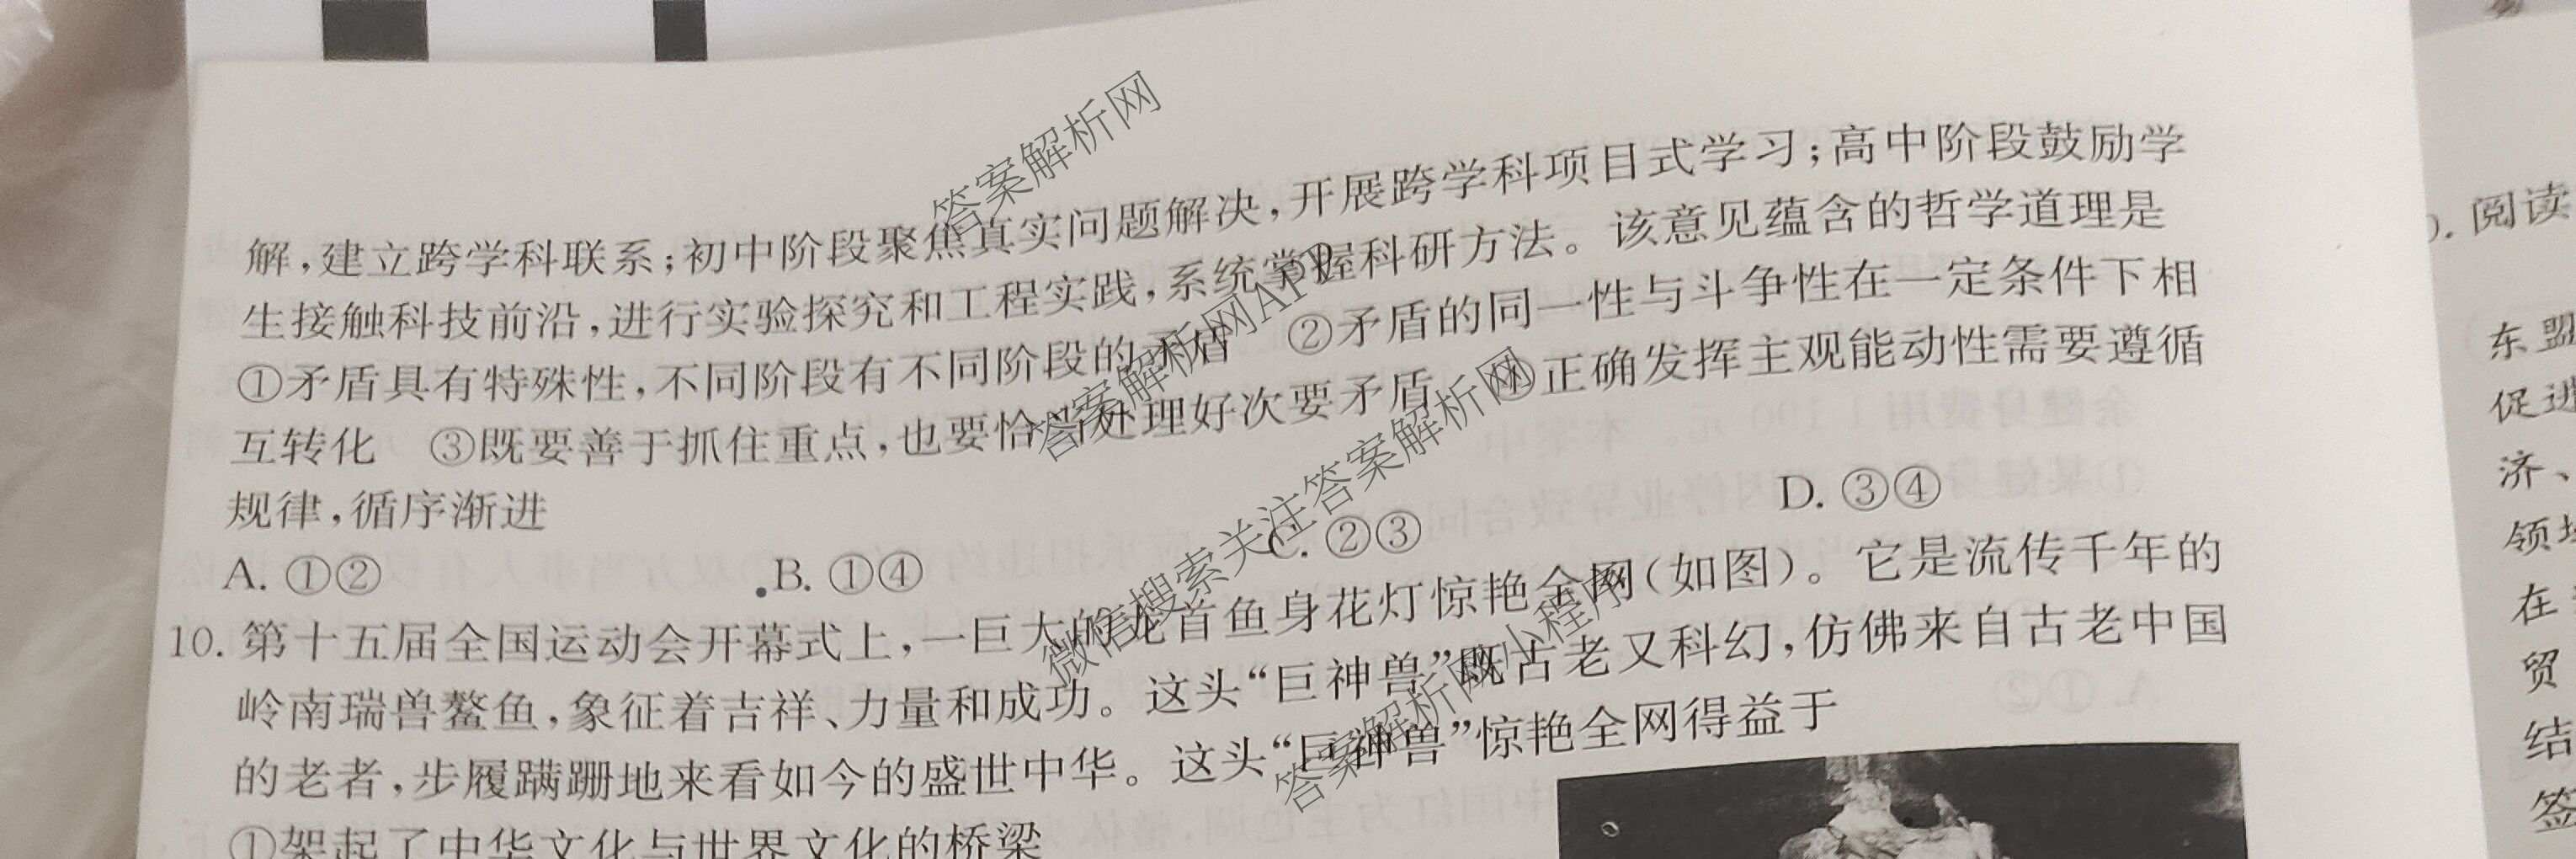 解,建立跨学科联系;初中阶段聚焦真实问题解决,开展跨学科项目式学习;高中阶段鼓励学
生接触科技前沿,进行实验探究和工程实践,系统掌握科研方法。该意见蕴含的哲学道理是
①矛盾具有特殊性,不同阶段有不同阶段的矛盾 ②矛盾的同一性与斗争性在一定条件下相
互转化 ③既要善于抓住重点,也要恰当处理好次要矛盾 ④正确发挥主观能动性需要遵循
规律,循序渐进
A. ①② B. ①④ C. ②③ D. ③④
10. 第十五届全国运动会开幕式上,一巨大的龙首鱼身花灯惊艳全网(如图)。它是流传千年的
岭南瑞兽鳌鱼,象征着吉祥、力量和成功。这头“巨神兽”既古老又科幻,仿佛来自古老中国
的老者,步履蹒跚地来看如今的盛世中华。这头“巨神兽”惊艳全网得益于
①架起了中华文化与世界文化的桥梁
阅读
东盟
促进
济、
领域
在
贸
结
签
答案解析网
答案解析网APP
微信搜索关注答案解析网
答案解析网小程序